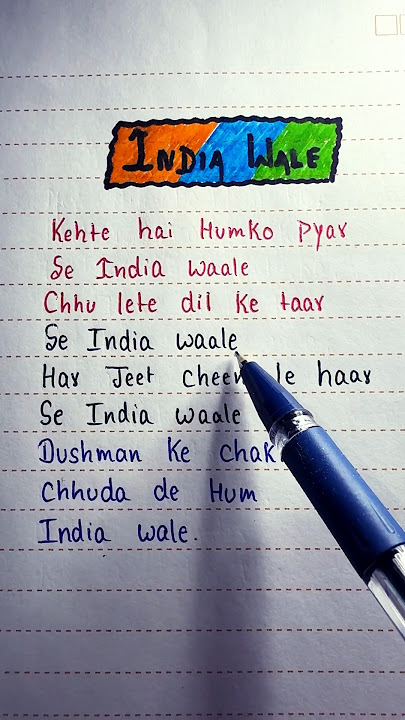 INDIA WALE
Kehte hai Humko Pyar
Se India waale
Chhu lete dil ke taar
Se India waale
Har Jeet le haar
Se India waale
Dushman ke
Chhuda de Hum
India wale.